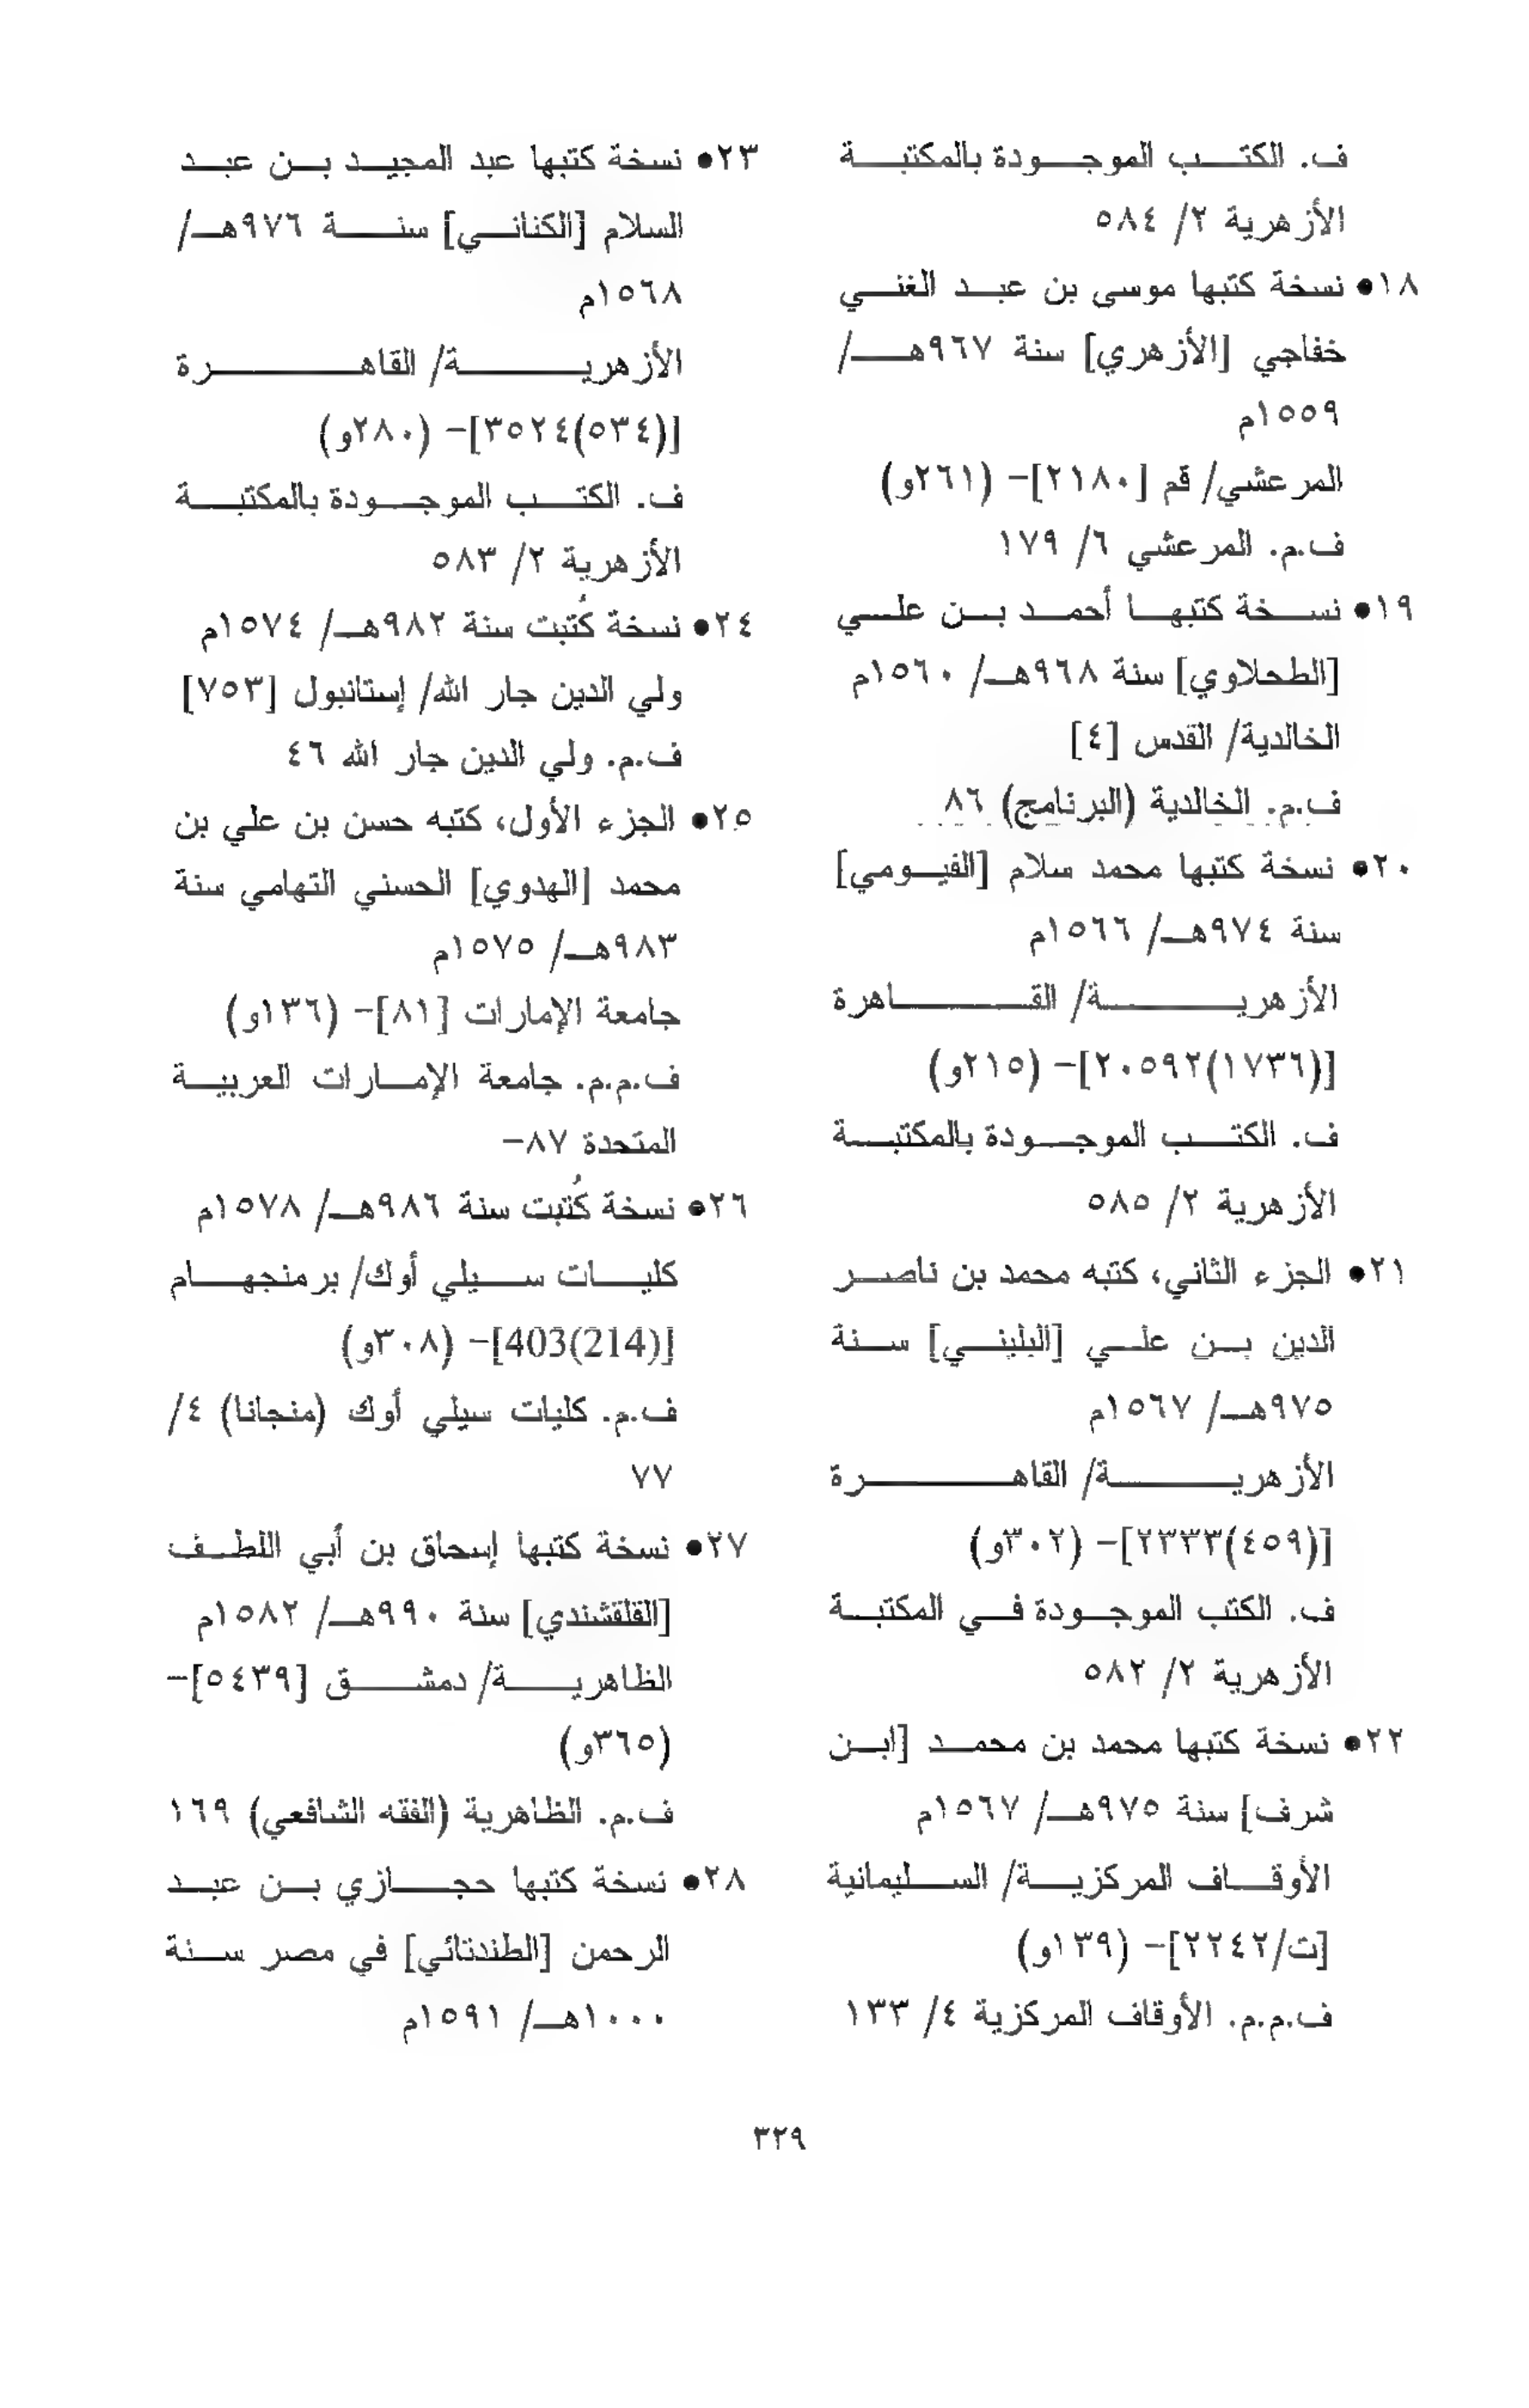 ف. الكتب الموجودة بالمكتبة
الأزهرية ٢/ ٥٨٤
١٨• نسخة كتبها موسى بن عبد الغني
خفاجي [الأزهري] سنة ٩٦٧هـ/
١٥٥٩م
المرعشي/ قم [٢١٨٠]- (٢٦١و)
ف.م. المرعشي ٦/ ١٧٩
١٩• نسخة كتبها أحمد بن علي
[الطحلاوي] سنة ٩٦٨هـ/ ١٥٦٠م
الخالدية/ القدس [٤]
ف.م. الخالدية (البرنامج) ٨٦
٢٠• نسخة كتبها محمد سلام [الفيومي]
سنة ٩٧٤هـ/ ١٥٦٦م
الأزهرية/ القاهرة
[(١٧٣٦)٢٠٥٩٢]- (٢١٥و)
ف. الكتب الموجودة بالمكتبة
الأزهرية ٢/ ٥٨٥
٢١• الجزء الثاني، كتبه محمد بن ناصر
الدين بن علي [البلبني] سنة
٩٧٥هـ/ ١٥٦٧م
الأزهرية/ القاهرة
[(٤٥٩)٢٣٣٣]- (٣٠٢و)
ف. الكتب الموجودة في المكتبة
الأزهرية ٢/ ٥٨٢
٢٢• نسخة كتبها محمد بن محمد [ابن
شرف] سنة ٩٧٥هـ/ ١٥٦٧م
الأوقاف المركزية/ السليمانية
[ت/٢٢٤٢]- (١٣٩و)
ف.م.م. الأوقاف المركزية ٤/ ١٣٣
٢٣• نسخة كتبها عبد المجيد بن عبد
السلام [الكناني] سنة ٩٧٦هـ/
١٥٦٨م
الأزهرية/ القاهرة
[(٥٣٤)٣٥٢٤]- (٢٨٠و)
ف. الكتب الموجودة بالمكتبة
الأزهرية ٢/ ٥٨٣
٢٤• نسخة كُتبت سنة ٩٨٢هـ/ ١٥٧٤م
ولي الدين جار الله/ إستانبول [٧٥٣]
ف.م. ولي الدين جار الله ٤٦
٢٥• الجزء الأول، كتبه حسن بن علي بن
محمد [الهدوي] الحسني التهامي سنة
٩٨٣هـ/ ١٥٧٥م
جامعة الإمارات [٨١]- (١٣٦و)
ف.م.م. جامعة الإمارات العربية
المتحدة ٨٧-
٢٦• نسخة كُتبت سنة ٩٨٦هـ/ ١٥٧٨م
كليات سيلي أوك/ برمنجهام
[403(214)]- (٣٠٨و)
ف.م. كليات سيلي أوك (منجانا) ٤/
٧٧
٢٧• نسخة كتبها إسحاق بن أبي اللطف
[القلقشندي] سنة ٩٩٠هـ/ ١٥٨٢م
الظاهرية/ دمشق [٥٤٣٩]-
(٣٦٥و)
ف.م. الظاهرية (الفقه الشافعي) ١٦٩
٢٨• نسخة كتبها حجازي بن عبد
الرحمن [الطندتائي] في مصر سنة
١٠٠٠هـ/ ١٥٩١م
٣٢٩